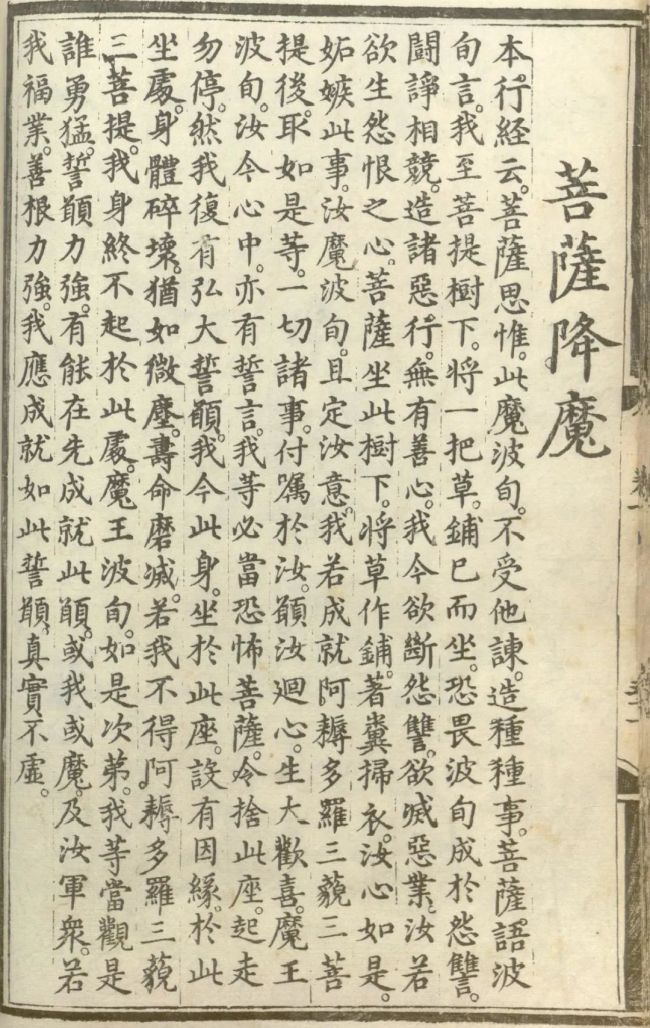 菩薩降魔
本行経云。菩薩思惟。此魔波旬。不受他諫。造種種事。菩薩語波
旬言。我至菩提樹下。将一把草。鋪已而坐。恐畏波旬成於怨讐。
闘諍相競。造諸惡行。無有善心。我今欲斷怨讐。欲滅惡業。汝若
欲生怨恨之心。菩薩坐此樹下。将草作鋪。著糞掃衣。汝心如是。
妬嫉此事。汝魔波旬。且定汝意。我若成就。阿耨多羅三藐三菩
提後。取如是等。一切諸事。付嘱於汝。願汝迴心。生大歡喜。魔王
波旬。汝今心中。亦有誓言。我等必當恐怖菩薩。令捨此座。起走
勿停。然我復有弘大誓願。我今此身。坐於此座。設有因縁。於此
坐處。身體碎壞。猶如微塵。壽命磨滅。若我不得。阿耨多羅三藐
三菩提。我身終不起於此處。魔王波旬。如是次第。我等當觀是
誰勇猛。誓願力強。有能在先成就此願。或我或魔。及汝軍衆。若
我福業。善根力強。我應成就如此誓願。真實不虚。